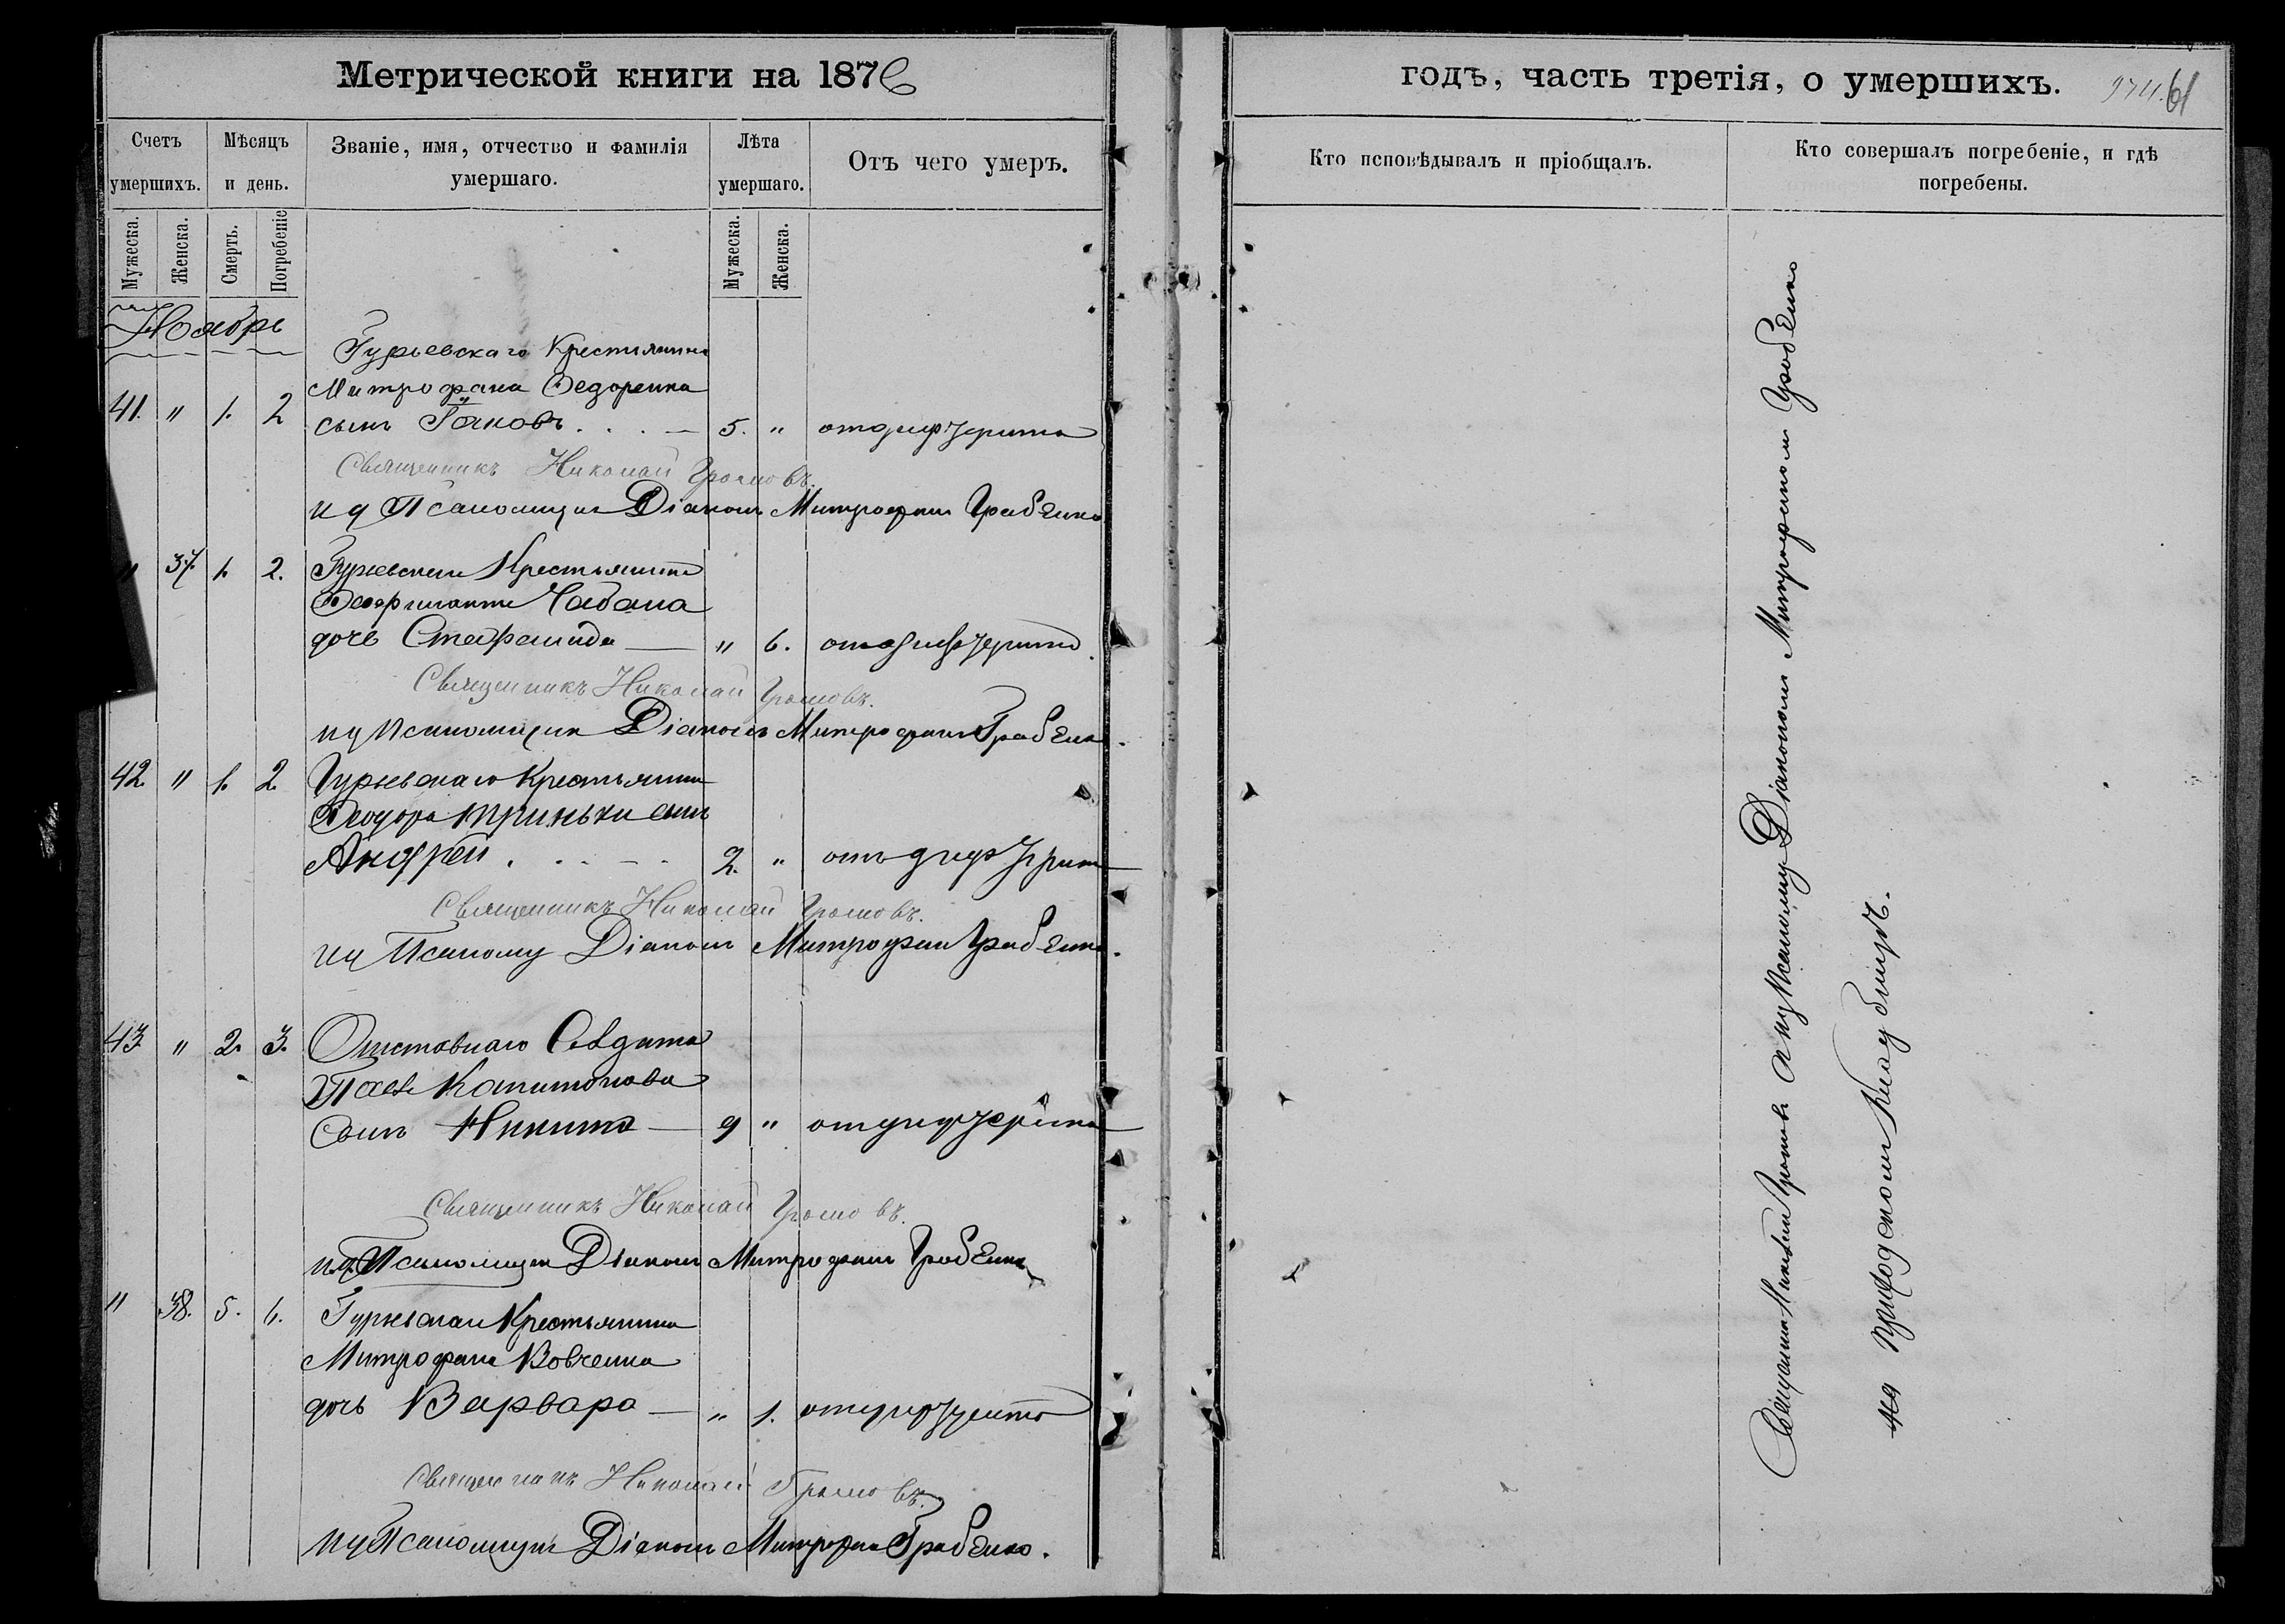 Метрической книги на 1876
Счетъ умершихъ.
Мѣсяцъ и день.
Званіе, имя, отчество и фамилія умершаго.
Лѣта умершаго.
Отъ чего умеръ.
Мужеска.
Женска.
Смерть.
Погребеніе
Мужеска.
Женска.
Ноябрь
Гурьевскаго Крестьянина
Митрофана Федоренка
41. " 1. 2 сынъ Іаковъ . . . — 5. " отдифтерита
Священникъ Николай Громовъ.
и д Псаломщика Діаконъ Митрофанъ Грабенко
" 37. 1. 2. Гурьевскаго Крестьянина
Феофилакта Чабана
дочь Стефанида — " 6. отдифтерита
Священникъ Николай Громовъ.
ид Псаломщика Діаконъ Митрофанъ Грабенко.
42. " 1. 2. Гурьевскаго Крестьянина
Феодора Триньки сынъ
Андрей . . . - . 2. " отъ дифтерита
Священникъ Николай Громовъ.
ид Псалому Діаконъ Митрофанъ Грабенко.
43 " 2. 3. Отставнаго Солдата
Капитонова
Сынъ Никита — 9 " отдифтерита
Священникъ Николай Громовъ.
ид. Псаломщика Діаконъ Митрофанъ Грабенко
" 38. 5. 6. Гурьевскаго Крестьянина
Митрофана Вовченка
дочь Варвара — " 1. отдифтерита
Священникъ Николай Громовъ.
ид Псаломщика Діаконъ Митрофанъ Грабенко.
годъ, часть третія, о умершихъ.
974. 61
Кто исповѣдывалъ и пріобщалъ.
Кто совершалъ погребеніе, и гдѣ погребены.
Священникъ Николай Громовъ Діакономъ Митрофаномъ Грабенко
на приходскомъ Кладбищѣ.